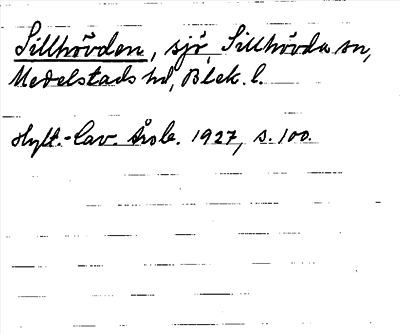 Sillhövden, sjö, Sillhövda sn,
Medelstads hd, Blek. l.
Hylt.-Cav. Årsb. 1927, s. 100.